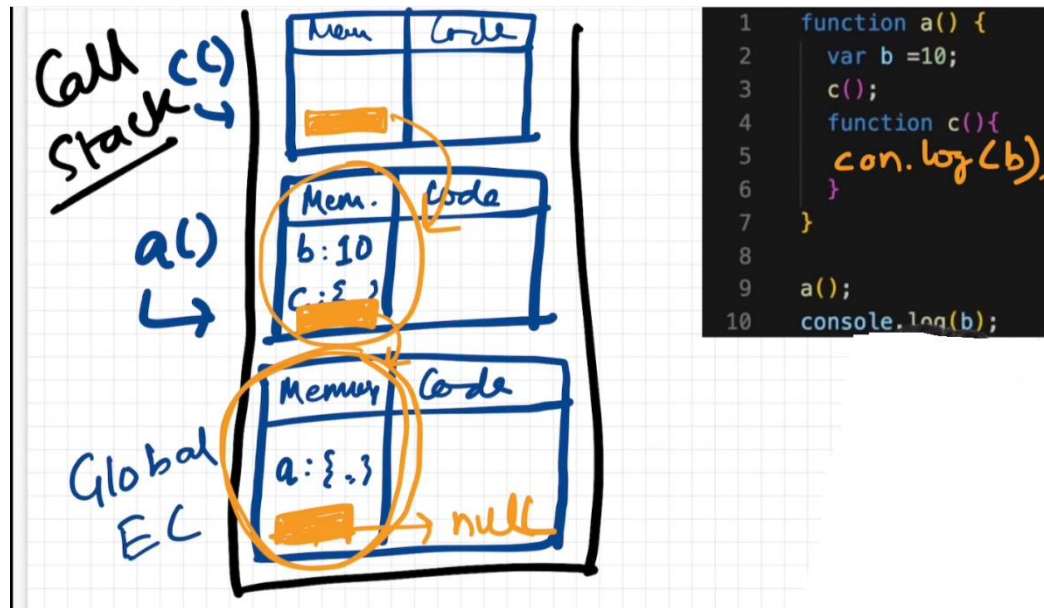 Call
Stack
c()
Mem
Code
a()
Mem.
Code
b:10
c:{ }
Global
EC
Memory
Code
a:{.}
null
1 function a() {
2 var b =10;
3 c();
4 function c(){
5 con.log(b),
6 }
7 }
8
9 a();
10 console.log(b);